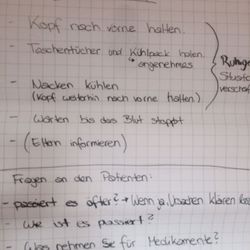 - Kopf nach vorne halten.
- Taschentücher und Kühlpack holen.
↳ angenehmes
- Nacken kühlen
(Kopf weiterhin nach vorne halten)
- Warten bis das Blut stoppt
- (Eltern informieren)
Fragen an den Patienten:
- passiert es öfter? → Wenn ja, Ursachen klären
- Wie ist es passiert?
- Was nehmen Sie für Medikamente?